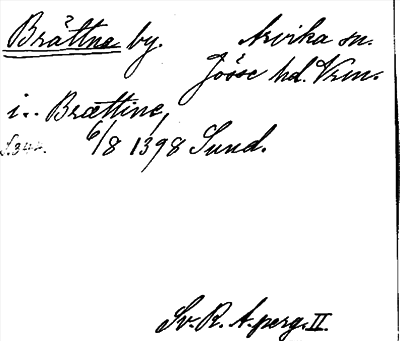 Brättne by. Arvika sn.
Jösse hd. Vrm.
i.. Brættine,
6/8 1398 Sund.
Sv. R. A. perg. II.